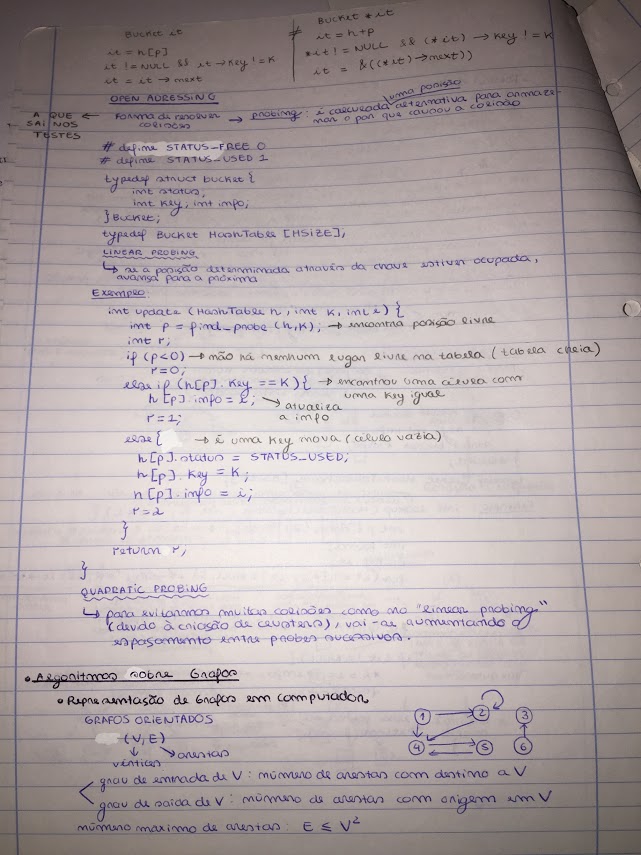 Bucket it
it = h[p]
it != NULL && it → Key != K
it = it → next
≠
Bucket * it
it = h+p
*it != NULL && (*it) → Key != K
it = &((*it) → next))
OPEN ADRESSING
A QUE SAI NOS TESTES ← Forma de resolver colisões → probing: é calculada uma posição alternativa para armazenar o par que causou a colisão
# define STATUS_FREE 0
# define STATUS_USED 1
typedef struct bucket {
int status;
int key; int info;
} Bucket;
typedef Bucket HashTable [HSIZE];
LINEAR PROBING
↳ se a posição determinada através da chave estiver ocupada,
avança para a próxima
Exemplo:
int update (HashTable h, int K, int i) {
int p = find_probe (h,K); → encontra posição livre
int r;
if (p<0) → não há nenhum lugar livre na tabela (tabela cheia)
r=0;
else if (h[p].Key == K) { → encontrou uma célula com uma Key igual
h[p].info = i; → atualiza a info
r=1;
else { → é uma Key nova (célula vazia)
h[p].status = STATUS_USED;
h[p].Key = K;
h[p].info = i;
r=2
}
return r;
}
QUADRATIC PROBING
↳ para evitarmos muitas colisões como no "linear probing"
(devido à criação de clusters), vai-se aumentando o
espaçamento entre probes sucessivos.
• Algoritmos sobre Grafos
• Representação de Grafos em computador
GRAFOS ORIENTADOS
(V, E)
vértices
arestas
1
2
3
4
5
6
grau de entrada de V: número de arestas com destino a V
grau de saída de V: número de arestas com origem em V
número máximo de arestas: E ≤ V²